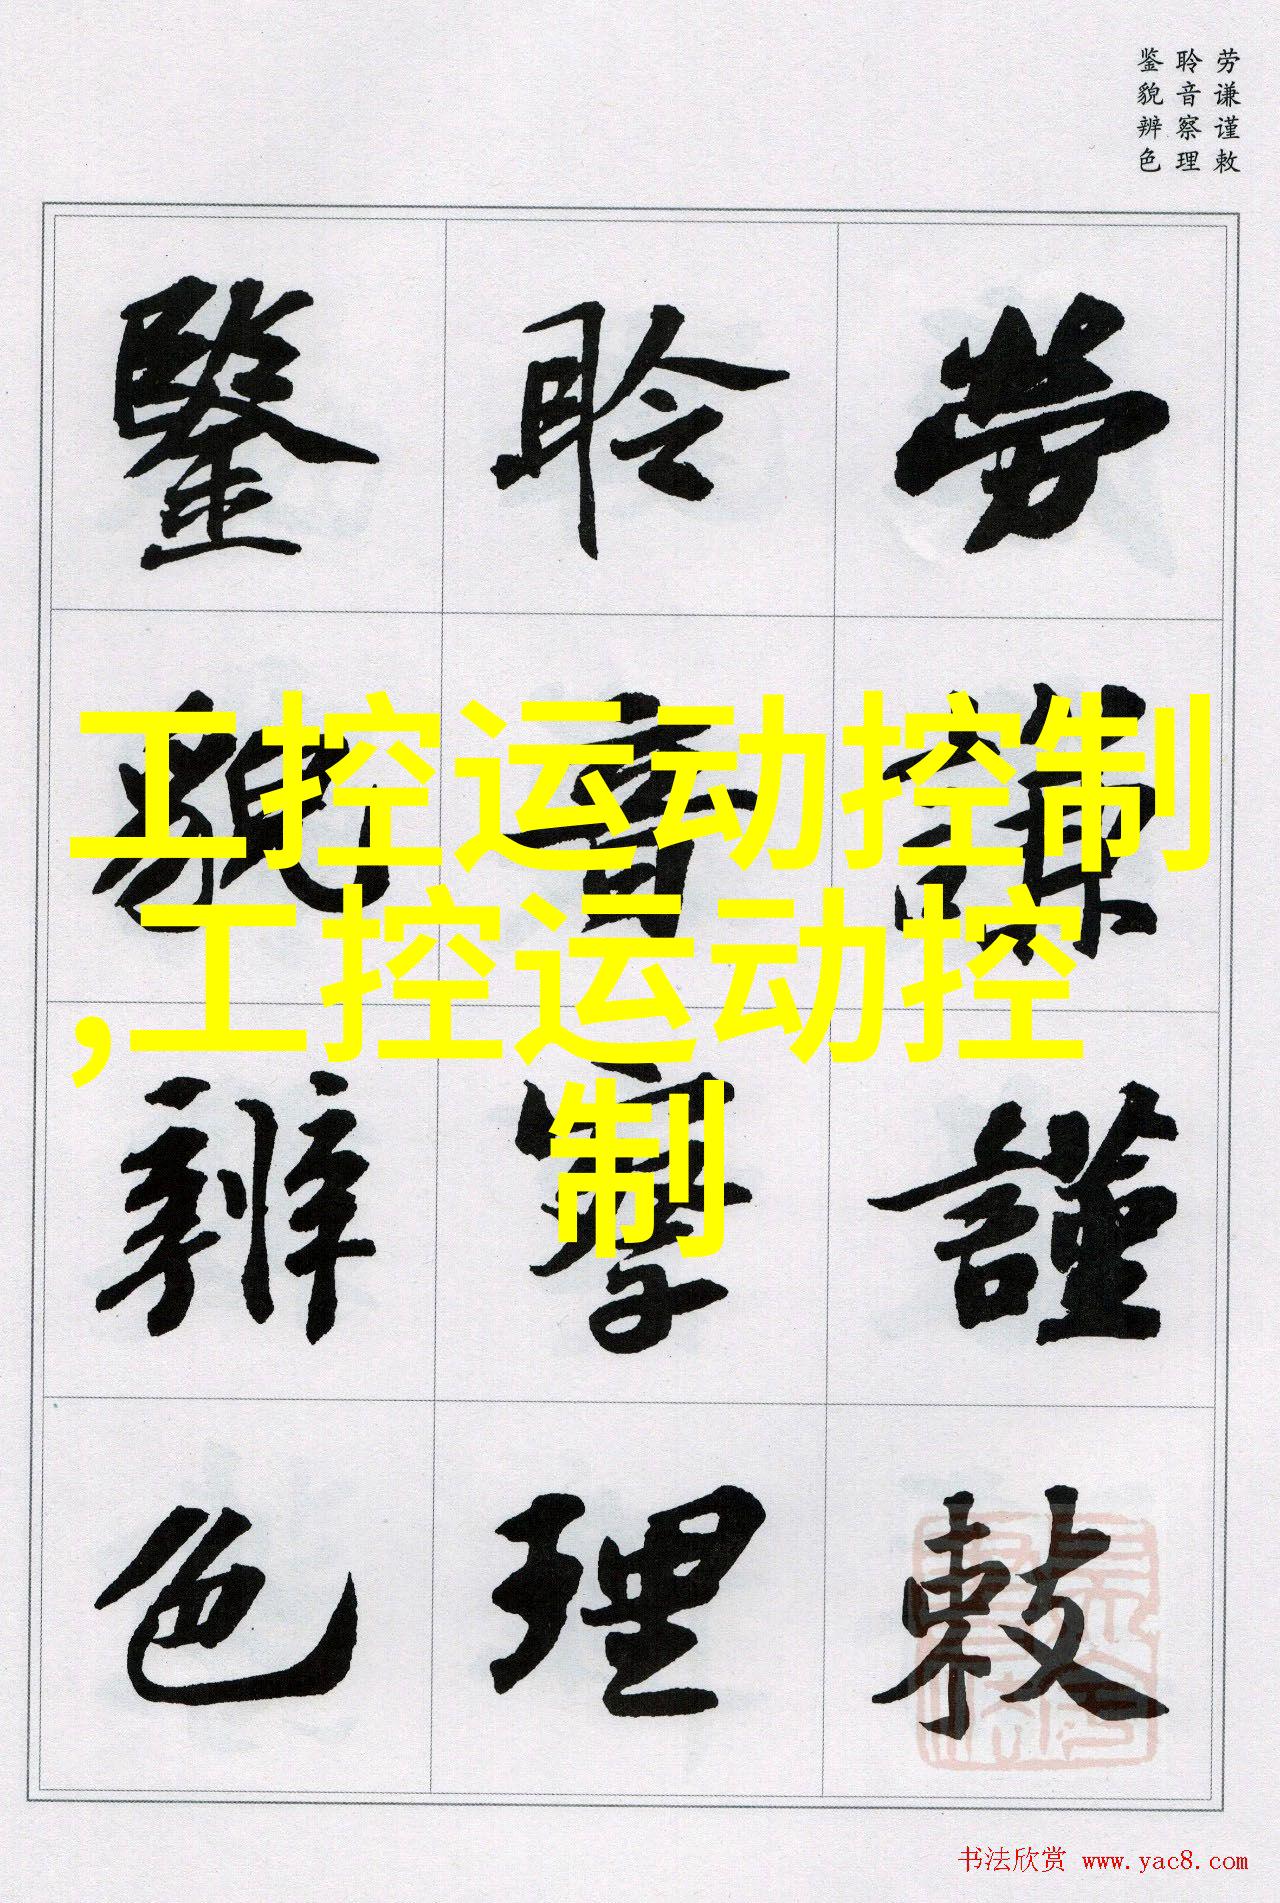 劳谦谨敕
聆音察理
鉴貌辨色
劳謙謹敕
聆音察理
鑒貌辨色
工控运动控制
,工控运动控
制
书法欣赏 www.yac8.com